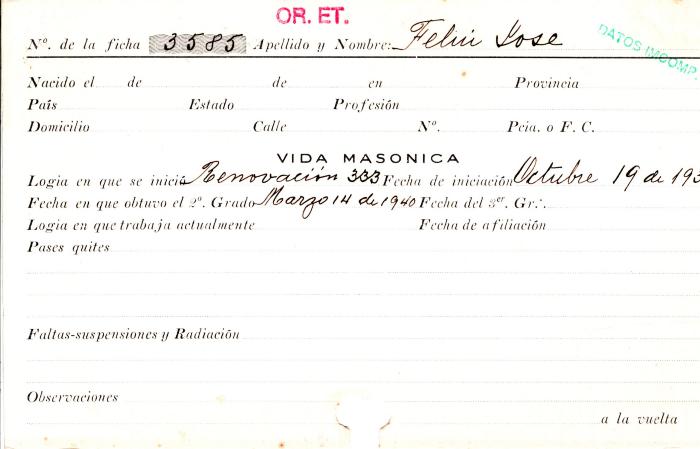 OR. ET.
DATOS INCOMP.
Nº. de la ficha 3585 Apellido y Nombre: Feliu Jose
Nacido el de de en Provincia
País Estado Profesión
Domicilio Calle Nº. Pcia. o F. C.
VIDA MASONICA
Logia en que se inició Renovación 333 Fecha de iniciación Octubre 19 de 193
Fecha en que obtuvo el 2º. Grado Marzo 14 de 1940 Fecha del 3er. Gr∴
Logia en que trabaja actualmente Fecha de afiliación
Pases quites
Faltas-suspensiones y Radiación
Observaciones
a la vuelta